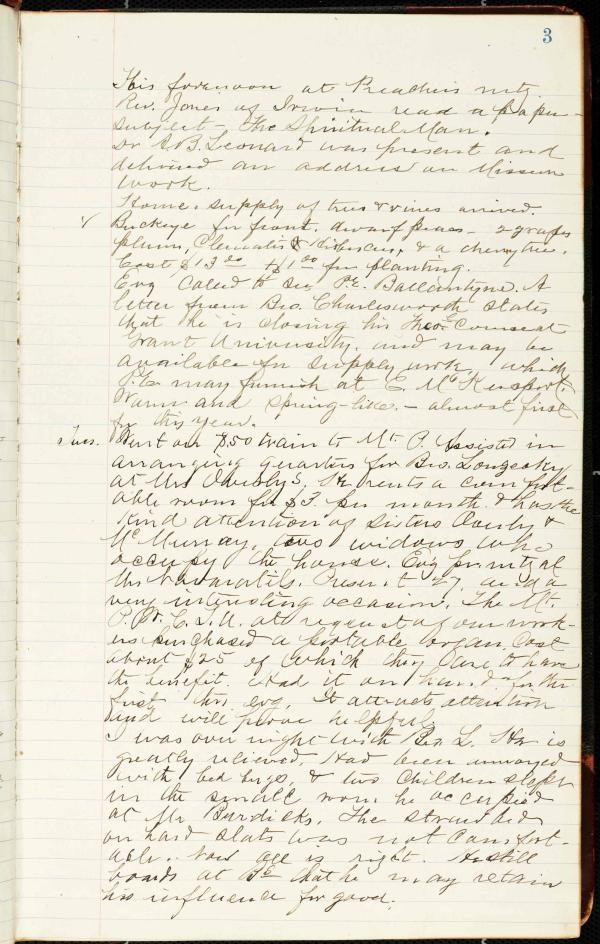 3
This forenoon at Preachers mtg.
Rev. Jones of Irwin read a paper -
subject - The Spiritual Man.
Dr A.B. Leonard was present and
delivered an address on Mission
work.
Home. supply of trees & vines arrived.
Buckeye for front. dwarf pears - 2 grapes
plum, Clematis & Hibiscus, & a cherry tree.
Cost $13 00 + $1 00 for planting.
Evg Called to see P.E. Ballantyne. A
letter from Bro. Charlesworth states
that he is closing his Theo. Course at
Grant University, and may be
available for supply work, which
P.E. may furnish at E. McKeesport
Warm and Spring-like. - almost first
for this year.
Tues. Went on 8,50 train to Mt. P. Assisted in
arranging quarters for Bro. 
at Mrs Overly's. He rents a comfort-
able room for $3. per month & has the
kind attention of Sisters Overly &
McMurray, two widows who
occupy the house. Evg 
Mrs Present 27, and a
very interesting occasion. The Mt.
P. Br. C.I.U. at request of our work-
ers purchased a portable organ. Cost
about $25 of which they are to have
the benefit. Had it on hand for the
first this evg. It attracts attention
and will prove helpful.
I was over night with Bro. L. He is
greatly relieved. Had been annoyed
with bed bugs, & two children slept
in the small room he occupied
at Mr Burdicks. The straw bed
on hard slats was not comfort-
able. Now all is right. He still
boards at that he may retain
his influence for good.